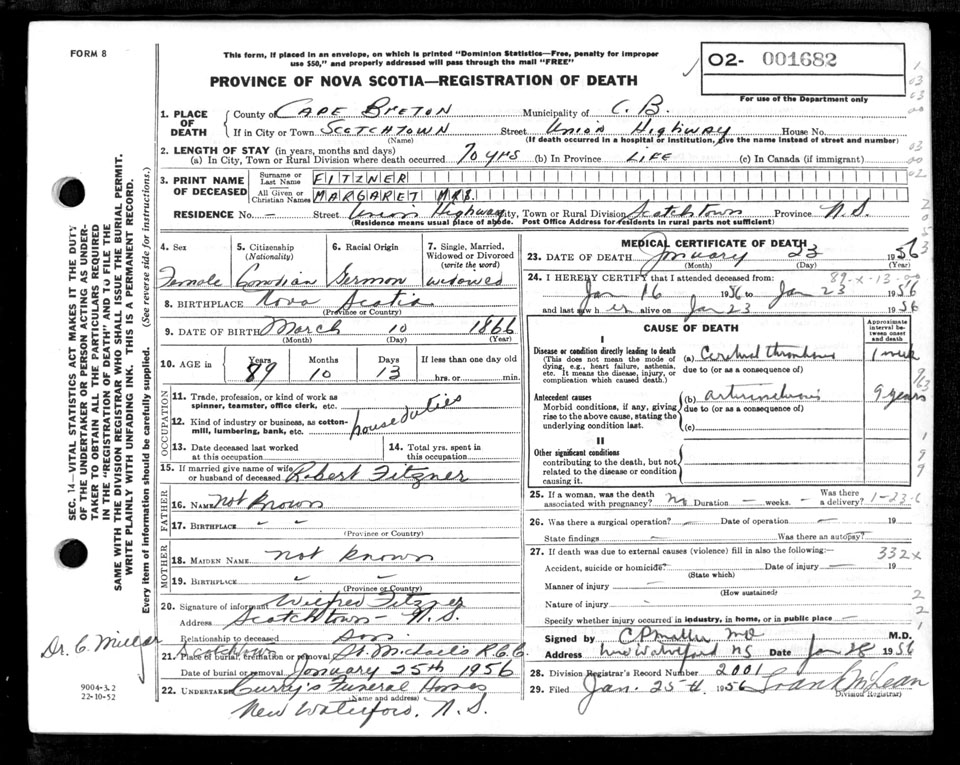 FORM 8
This form, if placed in an envelope, on which is printed "Dominion Statistics—Free, penalty for improper
use $50," and properly addressed will pass through the mail "FREE"
PROVINCE OF NOVA SCOTIA—REGISTRATION OF DEATH
02- 001682
For use of the Department only
1. PLACE OF DEATH
County of CAPE BRETON Municipality of C.B.
If in City or Town SCOTCHTOWN Street Union Highway House No.
(Name) (If death occurred in a hospital or institution, give the name instead of street and number)
2. LENGTH OF STAY (in years, months and days)
(a) In City, Town or Rural Division where death occurred 70 yrs (b) In Province LIFE (c) In Canada (if immigrant)
3. PRINT NAME OF DECEASED
Surname or Last Name FITZNER
All Given or Christian Names MARGARET MRS.
RESIDENCE No. - Street Union Highway City, Town or Rural Division Scotchtown Province N.S.
(Residence means usual place of abode. Post Office Address for residents in rural parts not sufficient)
4. Sex Female
5. Citizenship (Nationality) Canadian
6. Racial Origin German
7. Single, Married, Widowed or Divorced (write the word) widowed
8. BIRTHPLACE Nova Scotia
(Province or Country)
9. DATE OF BIRTH March 10 1866
(Month) (Day) (Year)
10. AGE in Years 89 Months 10 Days 13 If less than one day old
hrs. or min.
OCCUPATION
11. Trade, profession, or kind of work as
spinner, teamster, office clerk, etc.
12. Kind of industry or business, as cotton-
mill, lumbering, bank, etc. house duties
13. Date deceased last worked
at this occupation
14. Total yrs. spent in
this occupation
15. If married give name of wife
or husband of deceased Robert Fitzner
FATHER
16. NAME not known
17. BIRTHPLACE - -
(Province or Country)
MOTHER
18. MAIDEN NAME not known
19. BIRTHPLACE - -
(Province or Country)
20. Signature of informant Wilfred Fitzner
Address Scotchtown - N.S.
Relationship to deceased Son
21. Place of burial, cremation or removal Scotchtown St. Michael's R.C.C.
Date of burial or removal January 25th 1956
22. Undertaker Curry's Funeral Homes
(Name and address)
New Waterford, N.S.
MEDICAL CERTIFICATE OF DEATH
23. DATE OF DEATH January 23 1956
(Month) (Day) (Year)
89-x-13
24. I HEREBY CERTIFY that I attended deceased from:
Jan 16 1956 to Jan 23 1956
and last saw her alive on Jan 23 1956
CAUSE OF DEATH
Approximate interval between onset and death
I
Disease or condition directly leading to death
(This does not mean the mode of dying, e.g., heart failure, asthenia, etc. It means the disease, injury, or complication which caused death.)
(a) Cerebral thrombosis 1 week
due to (or as a consequence of)
Antecedent causes
Morbid conditions, if any, giving rise to the above cause, stating the underlying condition last.
(b) arteriosclerosis 9 years
due to (or as a consequence of)
(c)
II
Other significant conditions
contributing to the death, but not related to the disease or condition causing it.
25. If a woman, was the death
associated with pregnancy? no Duration - weeks. - Was there a delivery?
26. Was there a surgical operation? - Date of operation - 19
State findings - Was there an autopsy?
27. If death was due to external causes (violence) fill in also the following:-
332x
Accident, suicide or homicide? Date of injury - 19
(State which)
Manner of injury -
(How sustained)
Nature of injury -
Specify whether injury occurred in industry, in home, or in public place -
Signed by M.D.
Address New Waterford NS Date Jan 28 1956
28. Division Registrar's Record Number 2001
29. Filed Jan. 25th 1956 Frank McLean
(Division Registrar)
SEC. 14—VITAL STATISTICS ACT MAKES IT THE DUTY
OF THE UNDERTAKER OR PERSON ACTING AS UNDER-
TAKER TO OBTAIN ALL THE PARTICULARS REQUIRED
IN THE "REGISTRATION OF DEATH" AND TO FILE THE
SAME WITH THE DIVISION REGISTRAR WHO SHALL ISSUE THE BURIAL PERMIT.
WRITE PLAINLY WITH UNFADING INK. THIS IS A PERMANENT RECORD.
Every item of information should be carefully supplied. (See reverse side for instructions.)
Dr. C. Miller
9004-3.2
22-10-52